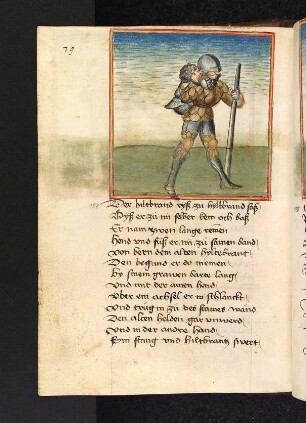 79
Der hiltbrand ryß zu hyltbrand saß
Hyß er zů im selber bem och baß
Er nam zwen lange remen
Hend und fůß er im zů samen band
Von bern dem alten hyltebrant
Den begund er do niemen
By sinem grawen barte lang
Und mit der ainen hand
Über ein achsel er in schlanckt
Und trůg in zů des staines wand
Den alten helden gar unwerd
Und in der andre hand
Ein stang und hiltbrantz swert